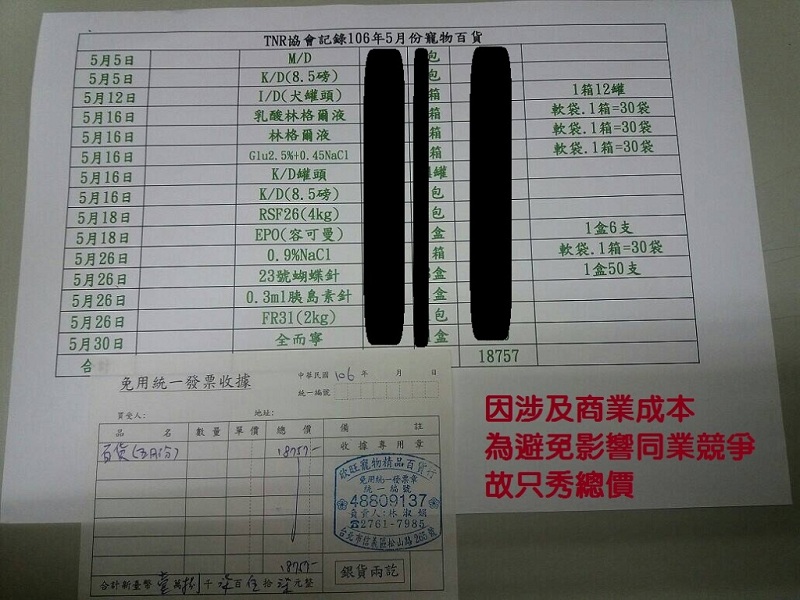 TNR協會記錄106年5月份寵物百貨
5月5日 M/D 包
5月5日 K/D(8.5磅) 包
5月12日 I/D(犬罐頭) 箱 1箱12罐
5月16日 乳酸林格爾液 箱 軟袋.1箱=30袋
5月16日 林格爾液 箱 軟袋.1箱=30袋
5月16日 Glu2.5%+0.45NaCl 箱 軟袋.1箱=30袋
5月16日 K/D罐頭 罐
5月16日 K/D(8.5磅) 包
5月18日 RSF26(4kg) 包
5月18日 EPO(容可曼) 盒 1盒6支
5月26日 0.9%NaCl 箱 軟袋.1箱=30袋
5月26日 23號蝴蝶針 盒 1盒50支
5月26日 0.3ml胰島素針 盒
5月26日 FR31(2kg) 包
5月30日 全而寧 盒
合 18757
免用統一發票收據
中華民國 106 年 月 日
統一編號
買受人: 地址:
品名 數量 單價 總價 備註
收據專用章
百貨(5月份) 18757-
欣旺寵物精品百貨行
免用統一發票章
統一編號
48809137
負責人:林淑娟
☎2761-7985
台北市信義區松山路265號
18757-
合計新臺幣 壹萬捌千柒百伍拾柒元整
銀貨兩訖
因涉及商業成本
為避免影響同業競爭
故只秀總價